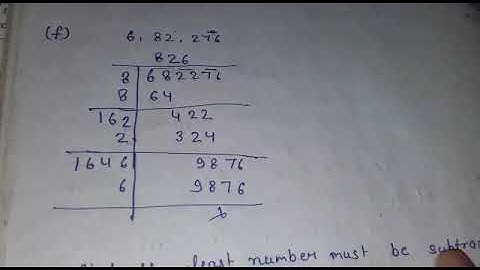 (f) 6, 82, 276
826
8 682276
8 64
162 422
2 324
1646 9876
6 9876
least number must be subtra